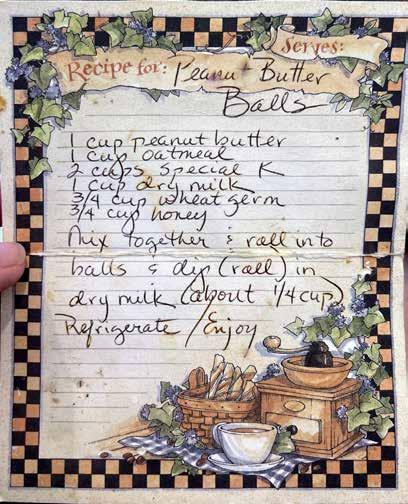 Serves:
Recipe for: Peanut Butter
Balls
1 cup peanut butter
1 cup oatmeal
2 cups Special K
1 cup dry milk
3/4 cup wheat germ
3/4 cup honey
Mix together & roll into
balls & dip (roll) in
dry milk (about 1/4 cup)
Refrigerate / Enjoy